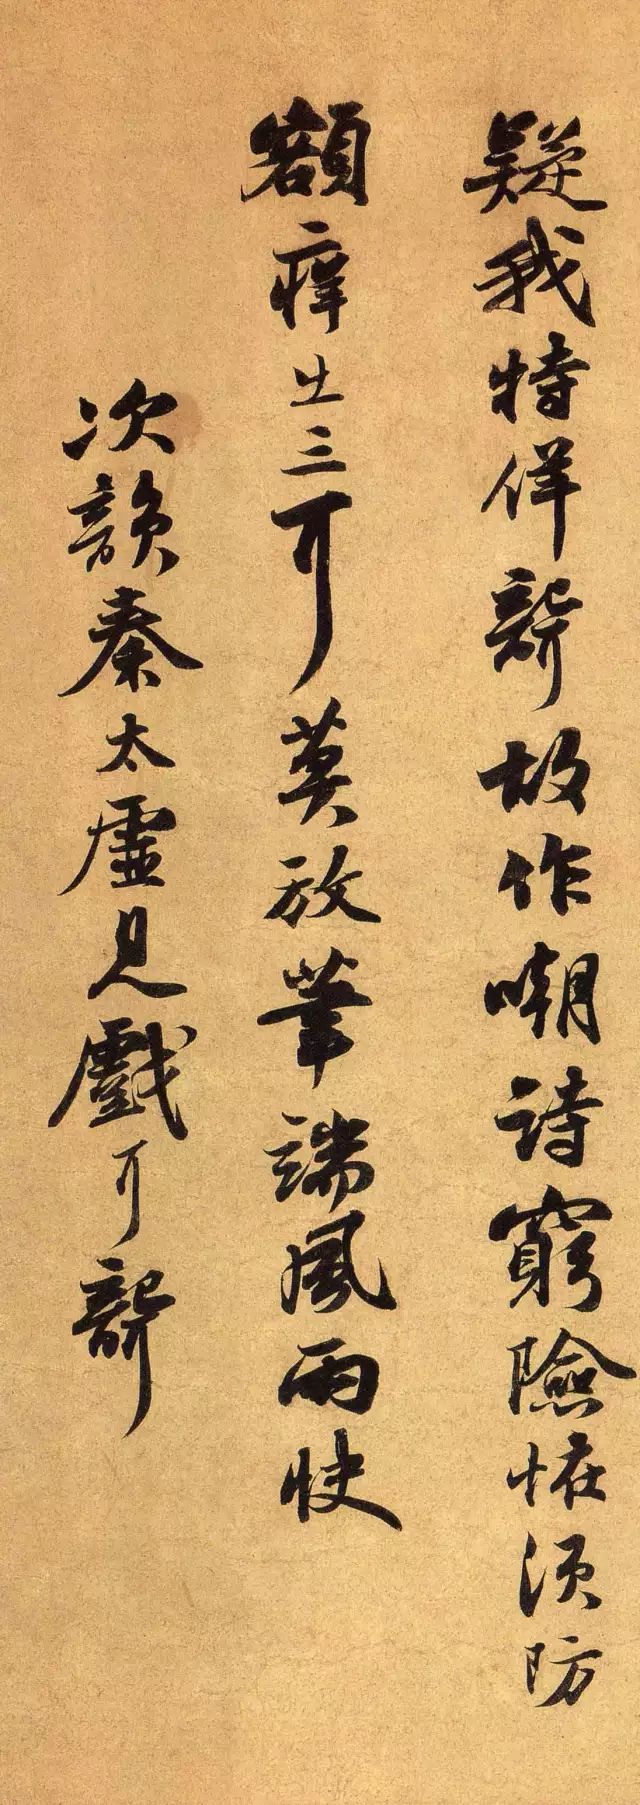 疑我特佯聾故作嘲詩窮險恠須防
額痒出三耳莫放筆端風雨快
次韻秦太虛見戲耳聾